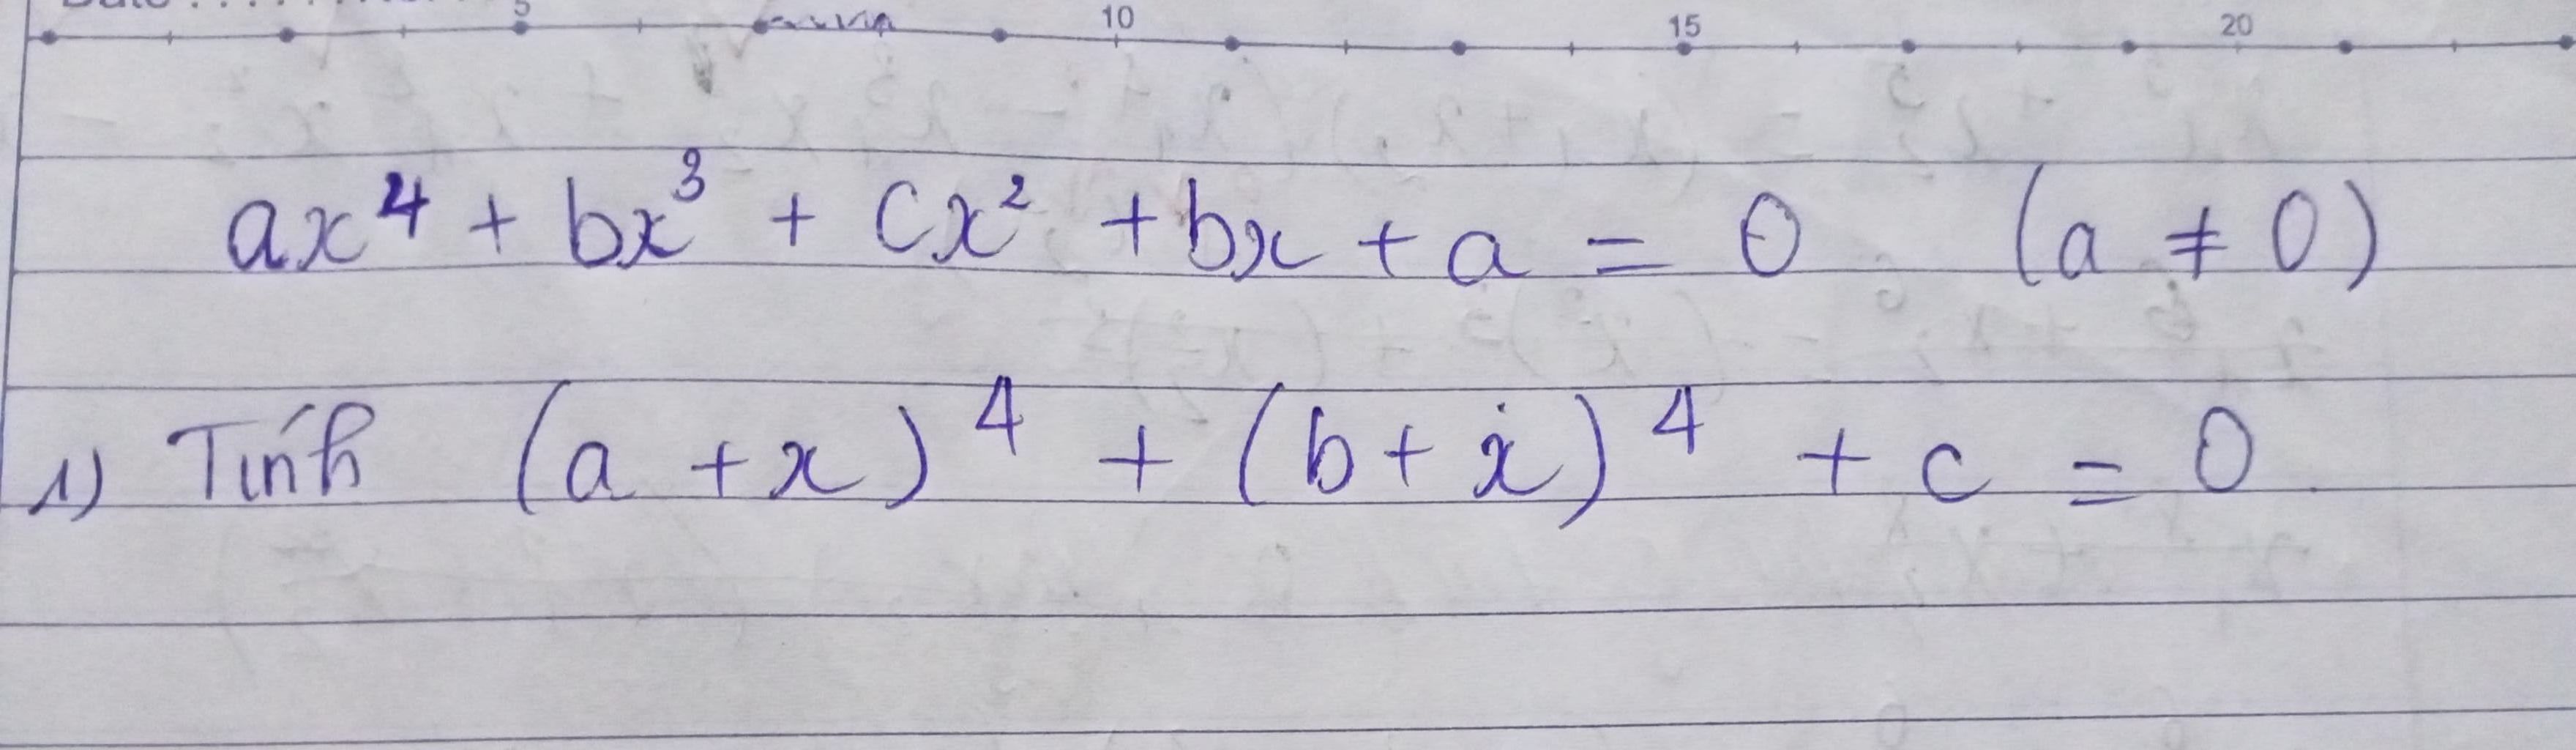 5 10 15 20
ax⁴ + bx³ + cx² + bx + a = 0 (a ≠ 0)
1) Tính (a + x)⁴ + (b + x)⁴ + c = 0